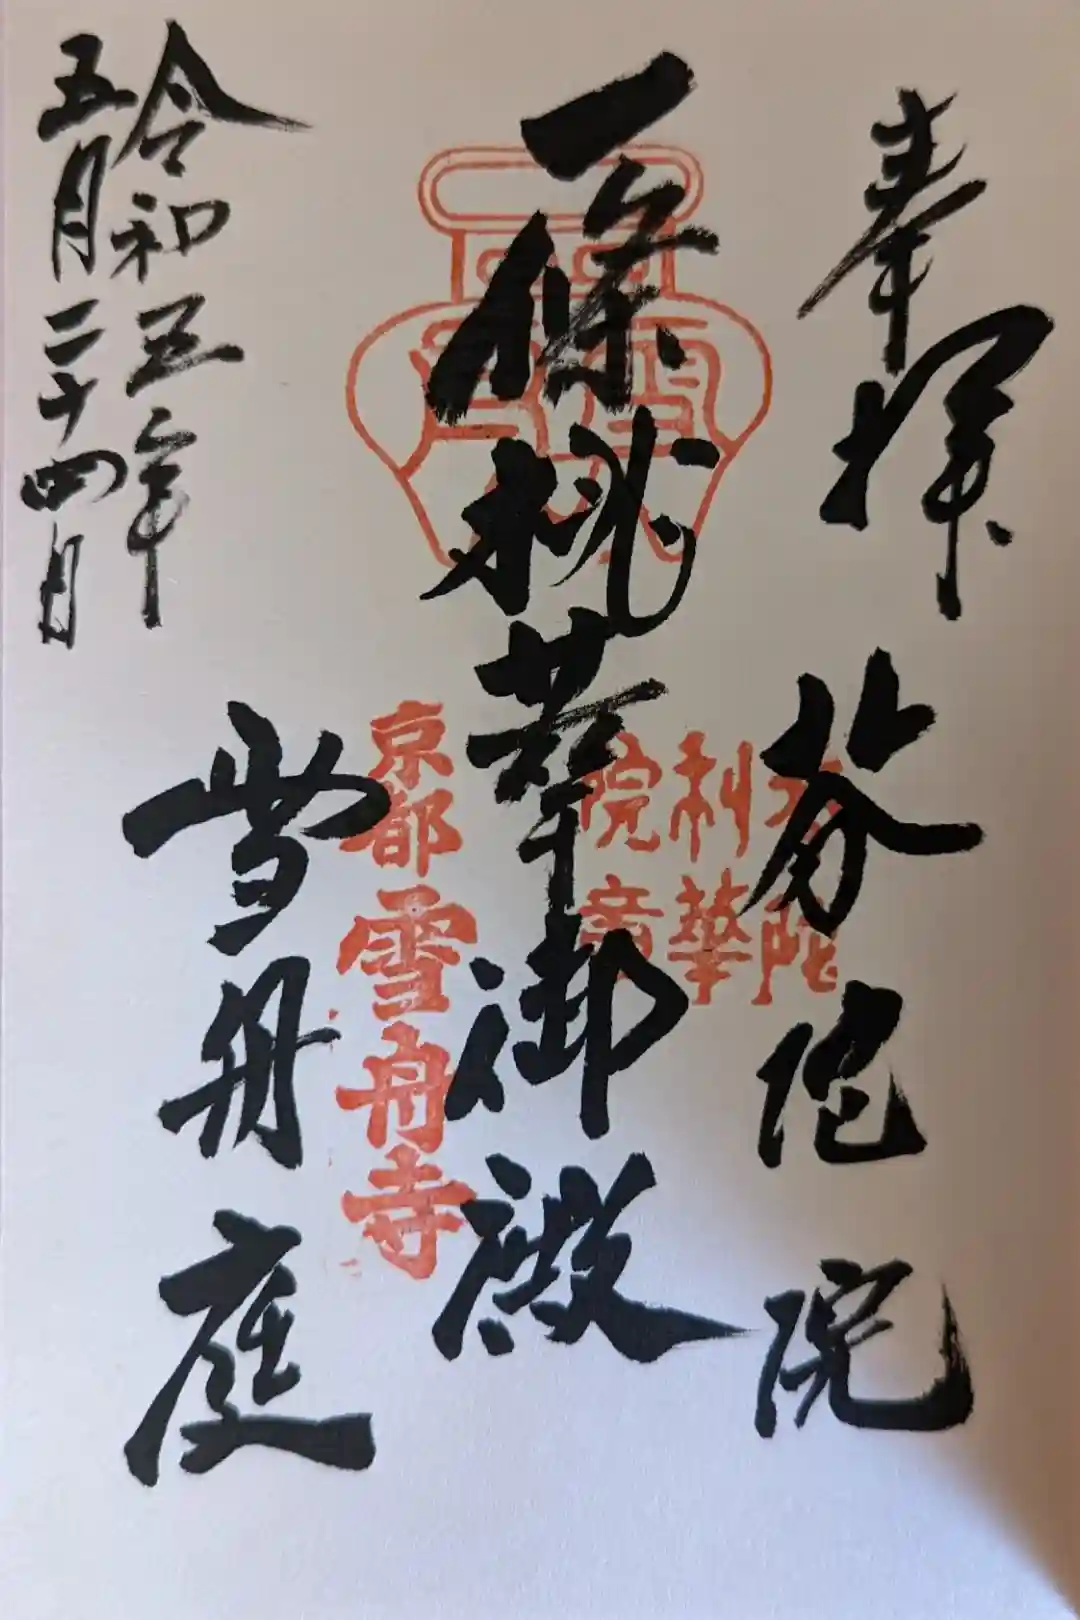 奉拝
芬陀院
一條桃華御殿
雪舟庭
令和五年
五月二十四日
京都
雪舟寺
利華
院章